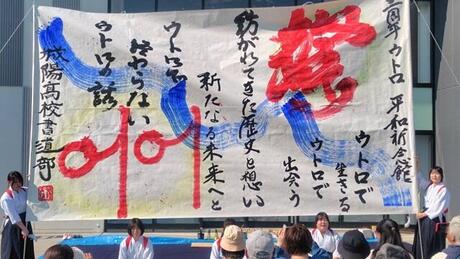 周年 ウトロ 平和祈念館
ウトロで
生きる
ウトロで
出会う
紡がれてきた歴史と想い
新たなる未来へと
ウトロで
終わらない
ウトロの話
이어
城陽高校書道部